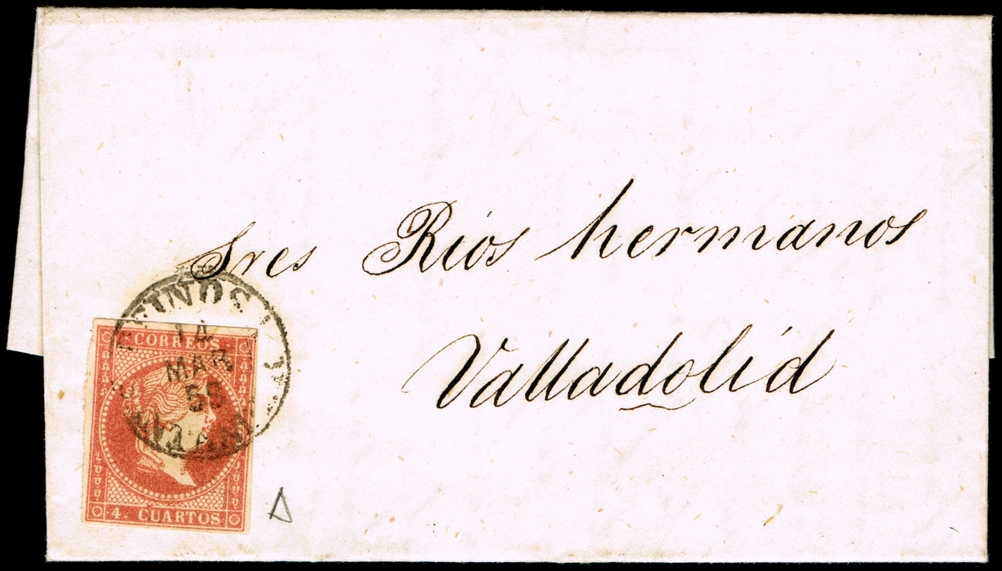 Sres Rios hermanos
Valladolid
14
MAR
CORREOS
4. CUARTOS